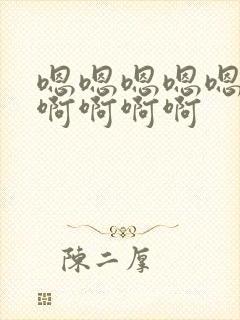 嗯嗯嗯嗯嗯
啊啊啊啊
陳二厚